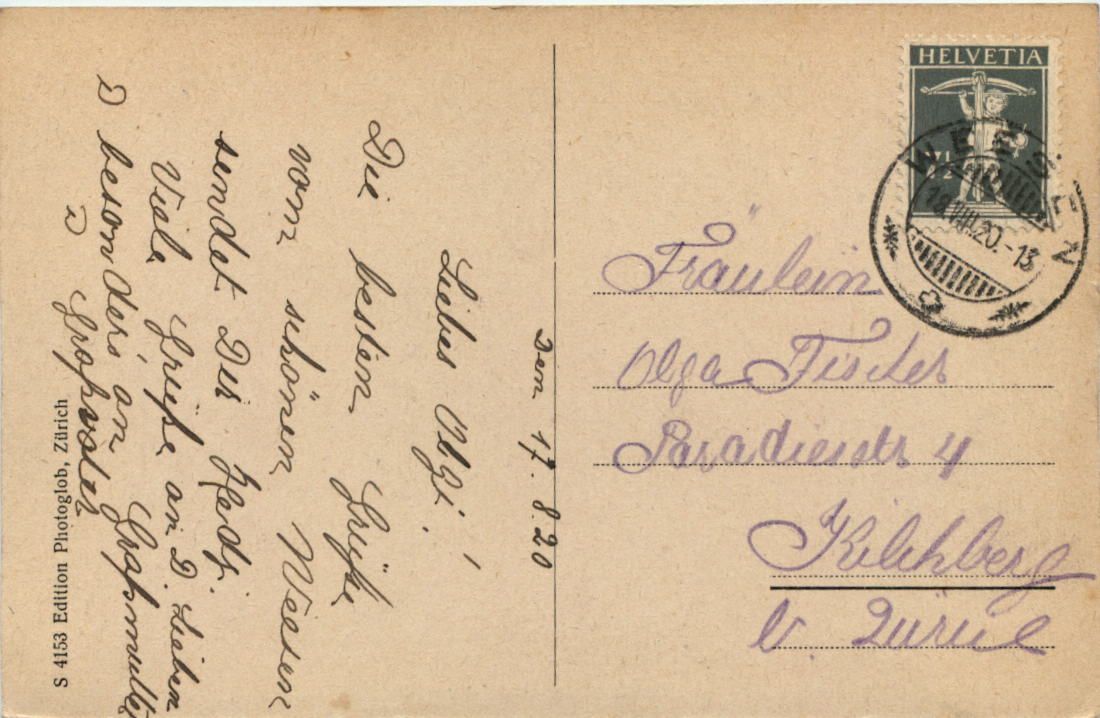 Den 17. 8. 20
Liebes Olgi!
Die besten Grüsse
vom schönen Weesen
sendet Dir Hedi.
Viele Grüsse an D Lieben
D besonders an Grossmutter
D Grossvater
S 4153 Edition Photoglob, Zürich
HELVETIA
7½
WEESEN
18.VIII.20.-13
Fräulein
Olga Fischer
Paradiesstr 4
Kilchberg
b. Zürich